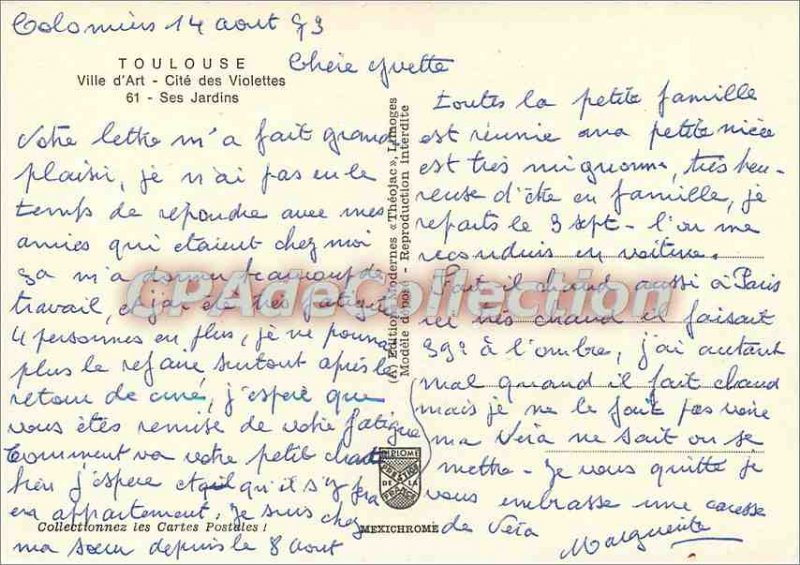 Colomiers 14 aout 73
TOULOUSE
Ville d'Art - Cité des Violettes
61 - Ses Jardins
Chère Yvette
Votre lettre m'a fait grand
plaisir, je n'ai pas eu le
temps de repondre avec mes
amies qui etaient chez moi
ça m'a donner beaucoup de
travail, et j'ai été très fatiguée
4 personnes en plus, je ne pourrai
plus le refaire, surtout après le
retour de cure, j'espère que
vous êtes remise de votre fatigue
Comment va votre petit chat
bien j'espère et qu'il s'y fera
en appartement, Je suis chez
ma sœur depuis le 8 aout
Collectionnez les Cartes Postales !
(A) Editions Modernes « Théojac », Limoges
Modèle déposé - Reproduction Interdite
DIPLOME
DE LA
FRANCE
MEXICHROME
toutes la petite famille
est réunie ma petite nièce
est très mignonne, très heu-
reuse d'être en famille, je
repars le 3 sept - l'on me
reconduis en voiture.
Fait il chaud aussi à Paris
ici très chaud il faisait
39° à l'ombre, j'ai autant
mal quand il fait chaud
mais je ne le fait pas voire
ma Véra ne sait ou se
mettre - Je vous quitte je
vous embrasse une caresse
de Véra
Marguerite
CPAdeCollection